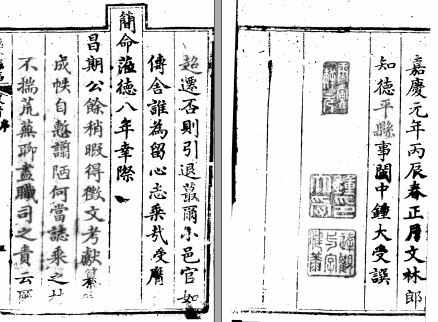 超遷否則引退蕞爾小邑官如
傳舍誰為留心志乘哉受膺
簡命蒞德八年幸際
昌期公餘稍暇得徵文考獻
成帙自慙謭陋何當誌乘之
不揣荒蕪聊盡職司之責云
嘉慶元年丙辰春正月文林郎
知德平縣事閩中鍾大受譔